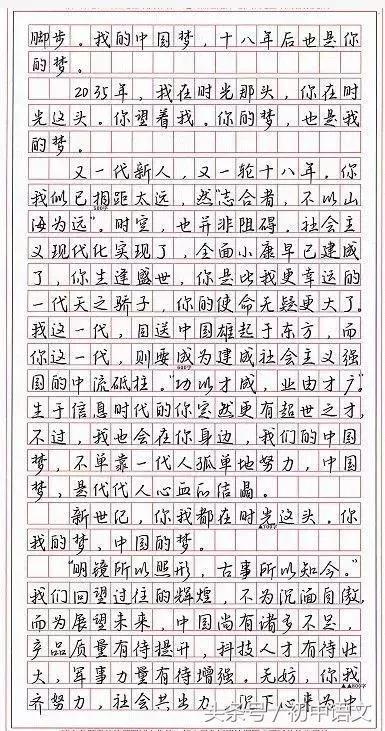 脚步。我的中国梦，十八年后也是你
的梦。
2035年，我在时光那头，你在时
光这头。你望着我。你的梦，也是我
的梦。
又一代新人，又一轮十八年。你
我似已相距太远，然“志合者，不以山
海为远”。时空，也并非阻碍。社会主
义现代化实现了，全面小康早已建成
了，你生逢盛世，你是比我更幸运的
一代天之骄子，你的使命无疑更大了。
我这一代，目送中国雄起于东方，而
你这一代，则要成为建成社会主义强
国的中流砥柱。“功以才成，业由才广。”
生于信息时代的你突然更有超世之才，
不过，我也会在你身边，我们的中国
梦，不单靠一代人孤单地努力，中国
梦，是代代人心血的结晶。
新世纪，你我都在时光这头。你
我的梦、中国的梦。
“明镜所以照形，古事所以知今。”
我们回望过往的辉煌，不为沉湎自傲，
而为展望未来，中国尚有诸多不足，
产品质量有待提升，科技人才有待壮
大，军事力量有待增强。无妨，你我
齐努力，社会共出力，沉下心来为中
头条号/初中语文